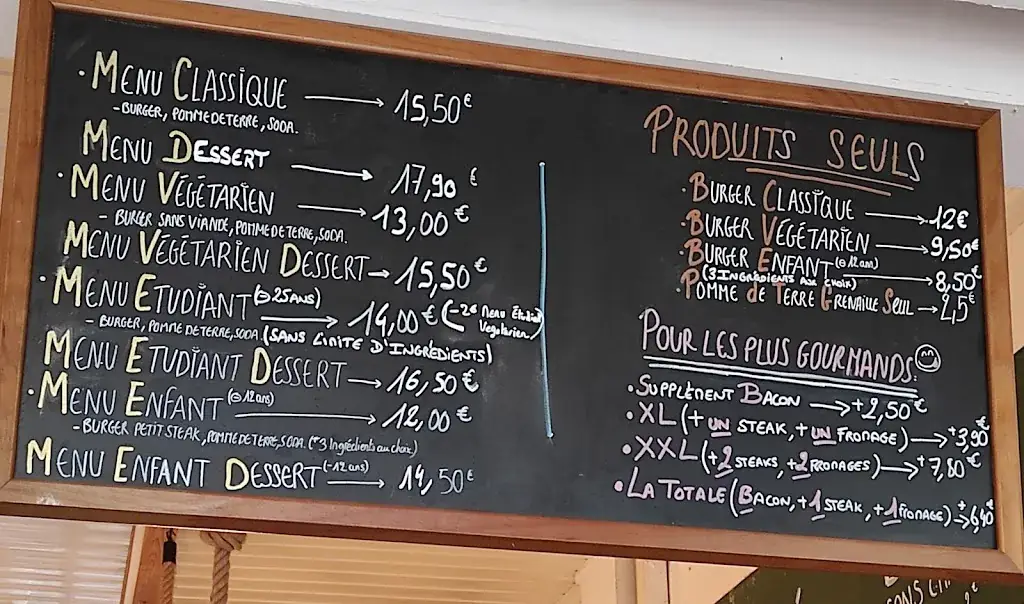 · MENU CLASSIQUE → 15,50€
- BURGER, POMME DE TERRE, SODA.
MENU DESSERT → 17,90 €
· MENU VÉGÉTARIEN → 13,00 €
- BURGER SANS VIANDE, POMME DE TERRE, SODA.
MENU VÉGÉTARIEN DESSERT → 15,50€
· MENU ETUDIANT (> 25 ANS) → 14,00€ (-2€ Menu Etudiant
Vegetarien)
- BURGER, POMME DE TERRE, SODA (SANS LIMITE D'INGRÉDIENTS)
MENU ETUDIANT DESSERT → 16,50€
· MENU ENFANT (⊖ 12 ans) → 12,00 €
- BURGER PETIT STEAK, POMME DE TERRE, SODA. (* 3 Ingrédients au choix)
MENU ENFANT DESSERT (-12 ans) → 14,50€
PRODUITS SEULS
· BURGER CLASSIQUE → 12€
· BURGER VÉGÉTARIEN → 9,50€
· BURGER ENFANT (⊖ 12 ans) → 8,50€
(3 INGRÉDIENTS AUX CHOIX)
· POMME de TERRE GRENAILLE SEUL → 2,5€
POUR LES PLUS GOURMANDS.
· SUPPLÉMENT BACON → +2,50€
· XL (+ UN STEAK, + UN FROMAGE) → +3,90€
· XXL (+2 STEAKS, +2 FROMAGES) → +7,80€
· LA TOTALE (BACON, +1 STEAK, +1 FROMAGE) → +6,40€